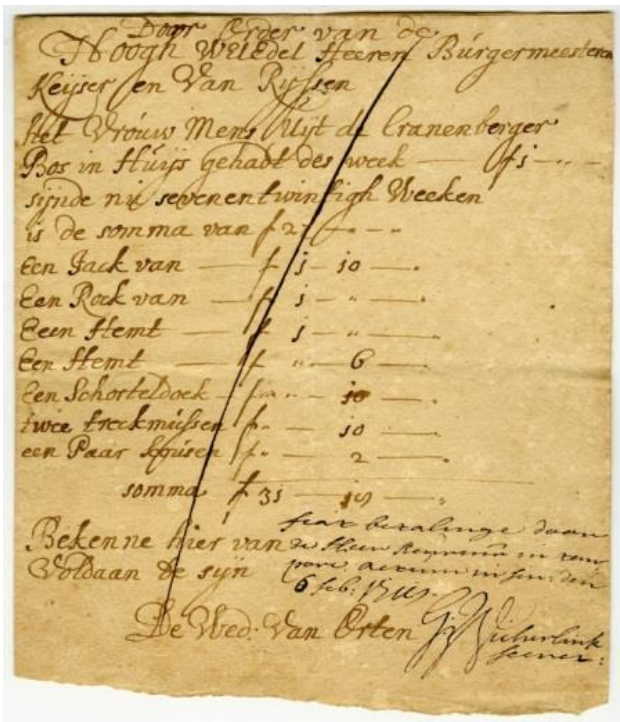 Door Order van de
Hoogh WelEdel Heeren Burgermeesteren
Keyser en Van Ryssen
het Vrouw Mens Uyt de Cranenberger
Bos in Huijs gehadt des week — f 1 - „ -
sijnde nu sevenentwintigh Weeken
is de somma van f 27 - „ - „
Een Jack van — f 1 - 10 - „
Een Rock van — f 1 - „ - „
Een Hemt — f 1 - „ - „
Een Hemt — f „ - 6 - „
Een Schorteldoek — f „ - 10 - „
twee treckmussen f „ - 10 - „
een Paar kousen f „ - 2 - „
somma f 31
Bekenne hier van
Voldaan te sijn
De Wed: Van Orten
fiat betalinge door
de Heer
6 feb: